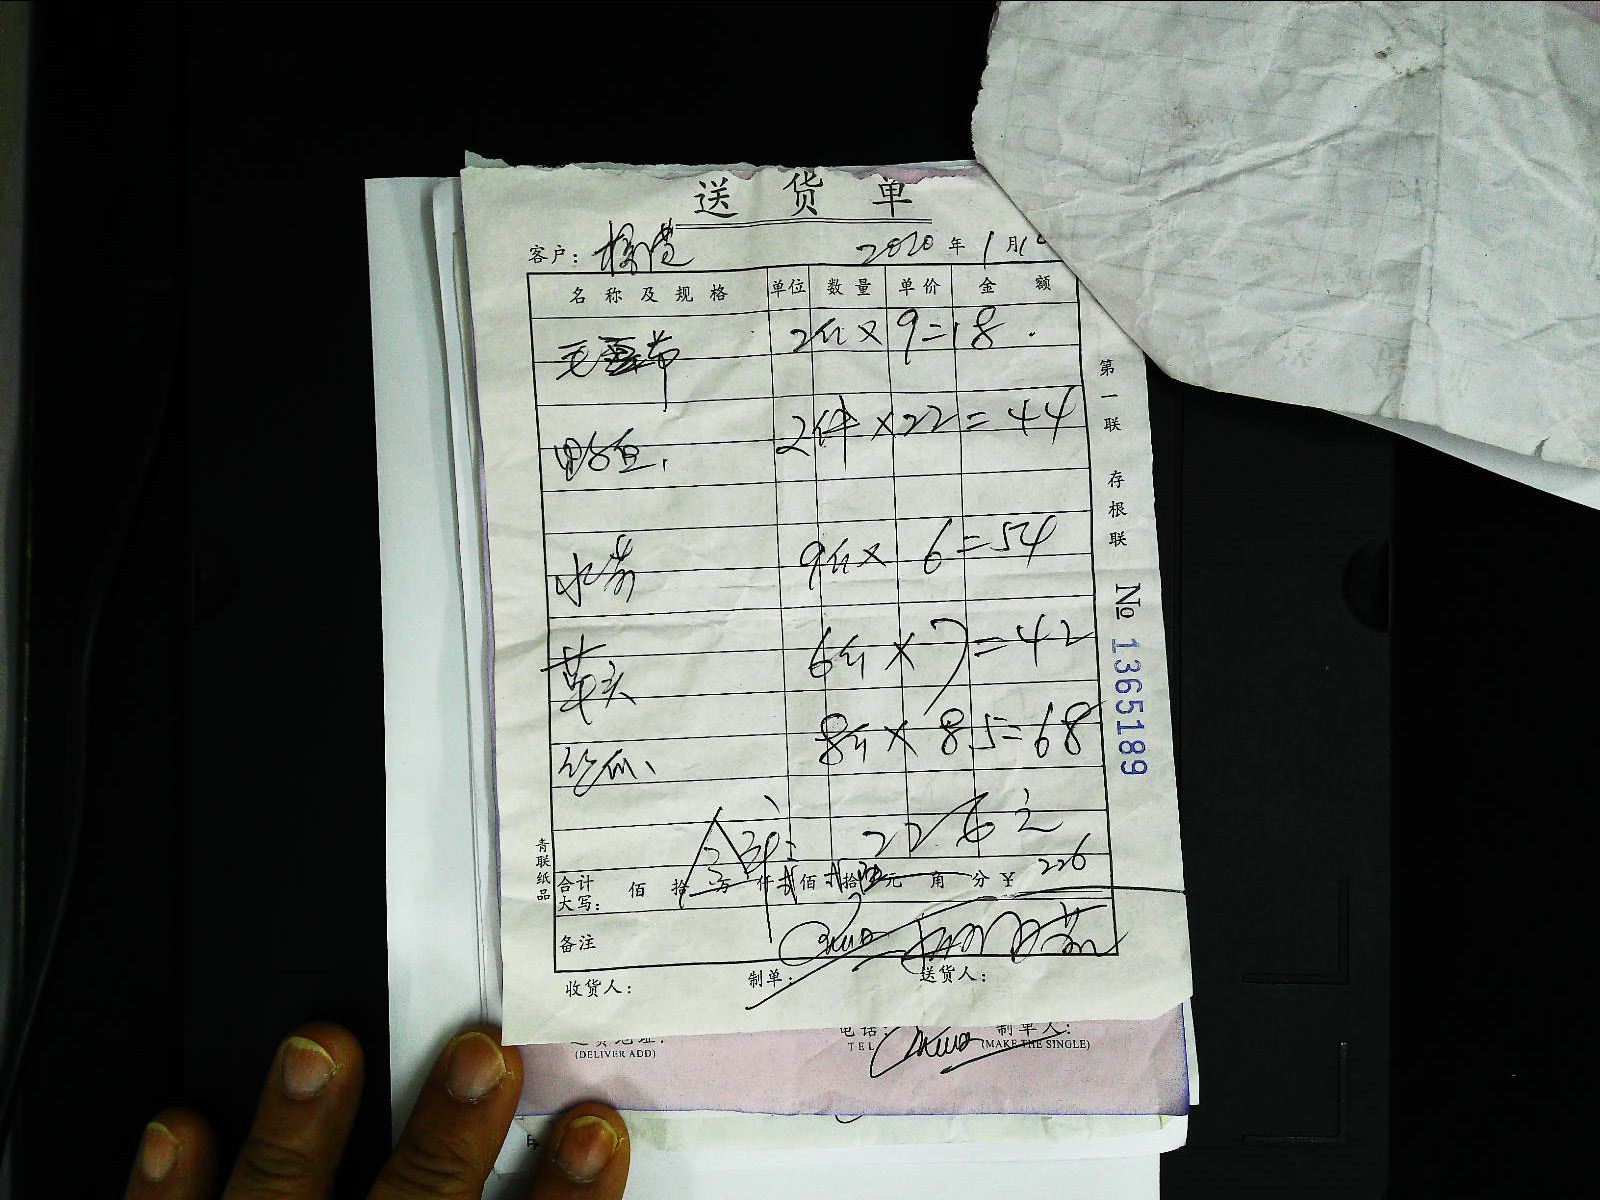 送货单
客户: 2020年1月1
名称及规格 单位 数量 单价 金额
2斤×9=18.
2件×22=44
水芹 9斤×6=54
草头 6斤×7=42
8斤×8.5=68
合计: 226元
合计大写: 佰 拾 万 仟 贰佰 贰拾 陆元 角 分 ¥ 226
备注
收货人: 制单: 送货人:
青联纸品
第一联 存根联
№ 1365189
电话: 制单人:
(DELIVER ADD) TEL (MAKE THE SINGLE)